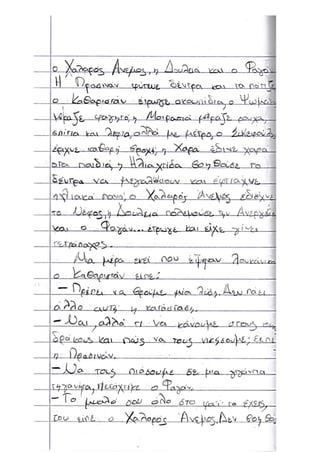 ο Χαλαρός Άνεμος, η Δουλειά και ο Φαγάν
Η Πρασινάν φύτευε δέντρα και τα πότιζε
ο Καθαριστάν έτρωγε σκουπίδια, ο Ψωμάν
μοίραζε φαγητό, η Μοιρασιά μοίραζε ρούχα,
σπίτια και λεφτά, αλλά με μέτρο, ο
έριχνε καθαρή βροχή, η Χαρά έδινε χαρά
στα παιδιά, η Ηλιαχτίδα βοηθούσε τα
δέντρα να μεγαλώσουν και έφτιαχνε
ηλιακά πανό, ο Χαλαρός Άνεμος έδιωχνε
το Νέφος, η Δουλειά πολεμούσε την Ανεργία
και ο Φαγάν... έτρωγε και είχε γίνει
τετράπαχος.
Μια μέρα εκεί που έψηναν λουκάνικα
ο Καθαριστάν είπε:
– Πρέπει να βρούμε μία λύση. Δεν πάει
άλλο αυτή η κατάσταση.
– Ναι, αλλά τι να κάνουμε στους
δράκους και πώς να τους νικήσουμε; είπε
η Πρασινάν.
– Να τους πιάσουμε σε μια γιγάντια
τηγανιέρα, πετάχτηκε ο Φαγάν.
– Το μυαλό σου όλο στο φαΐ το έχεις,
του είπε ο Χαλαρός Άνεμος. Δεν